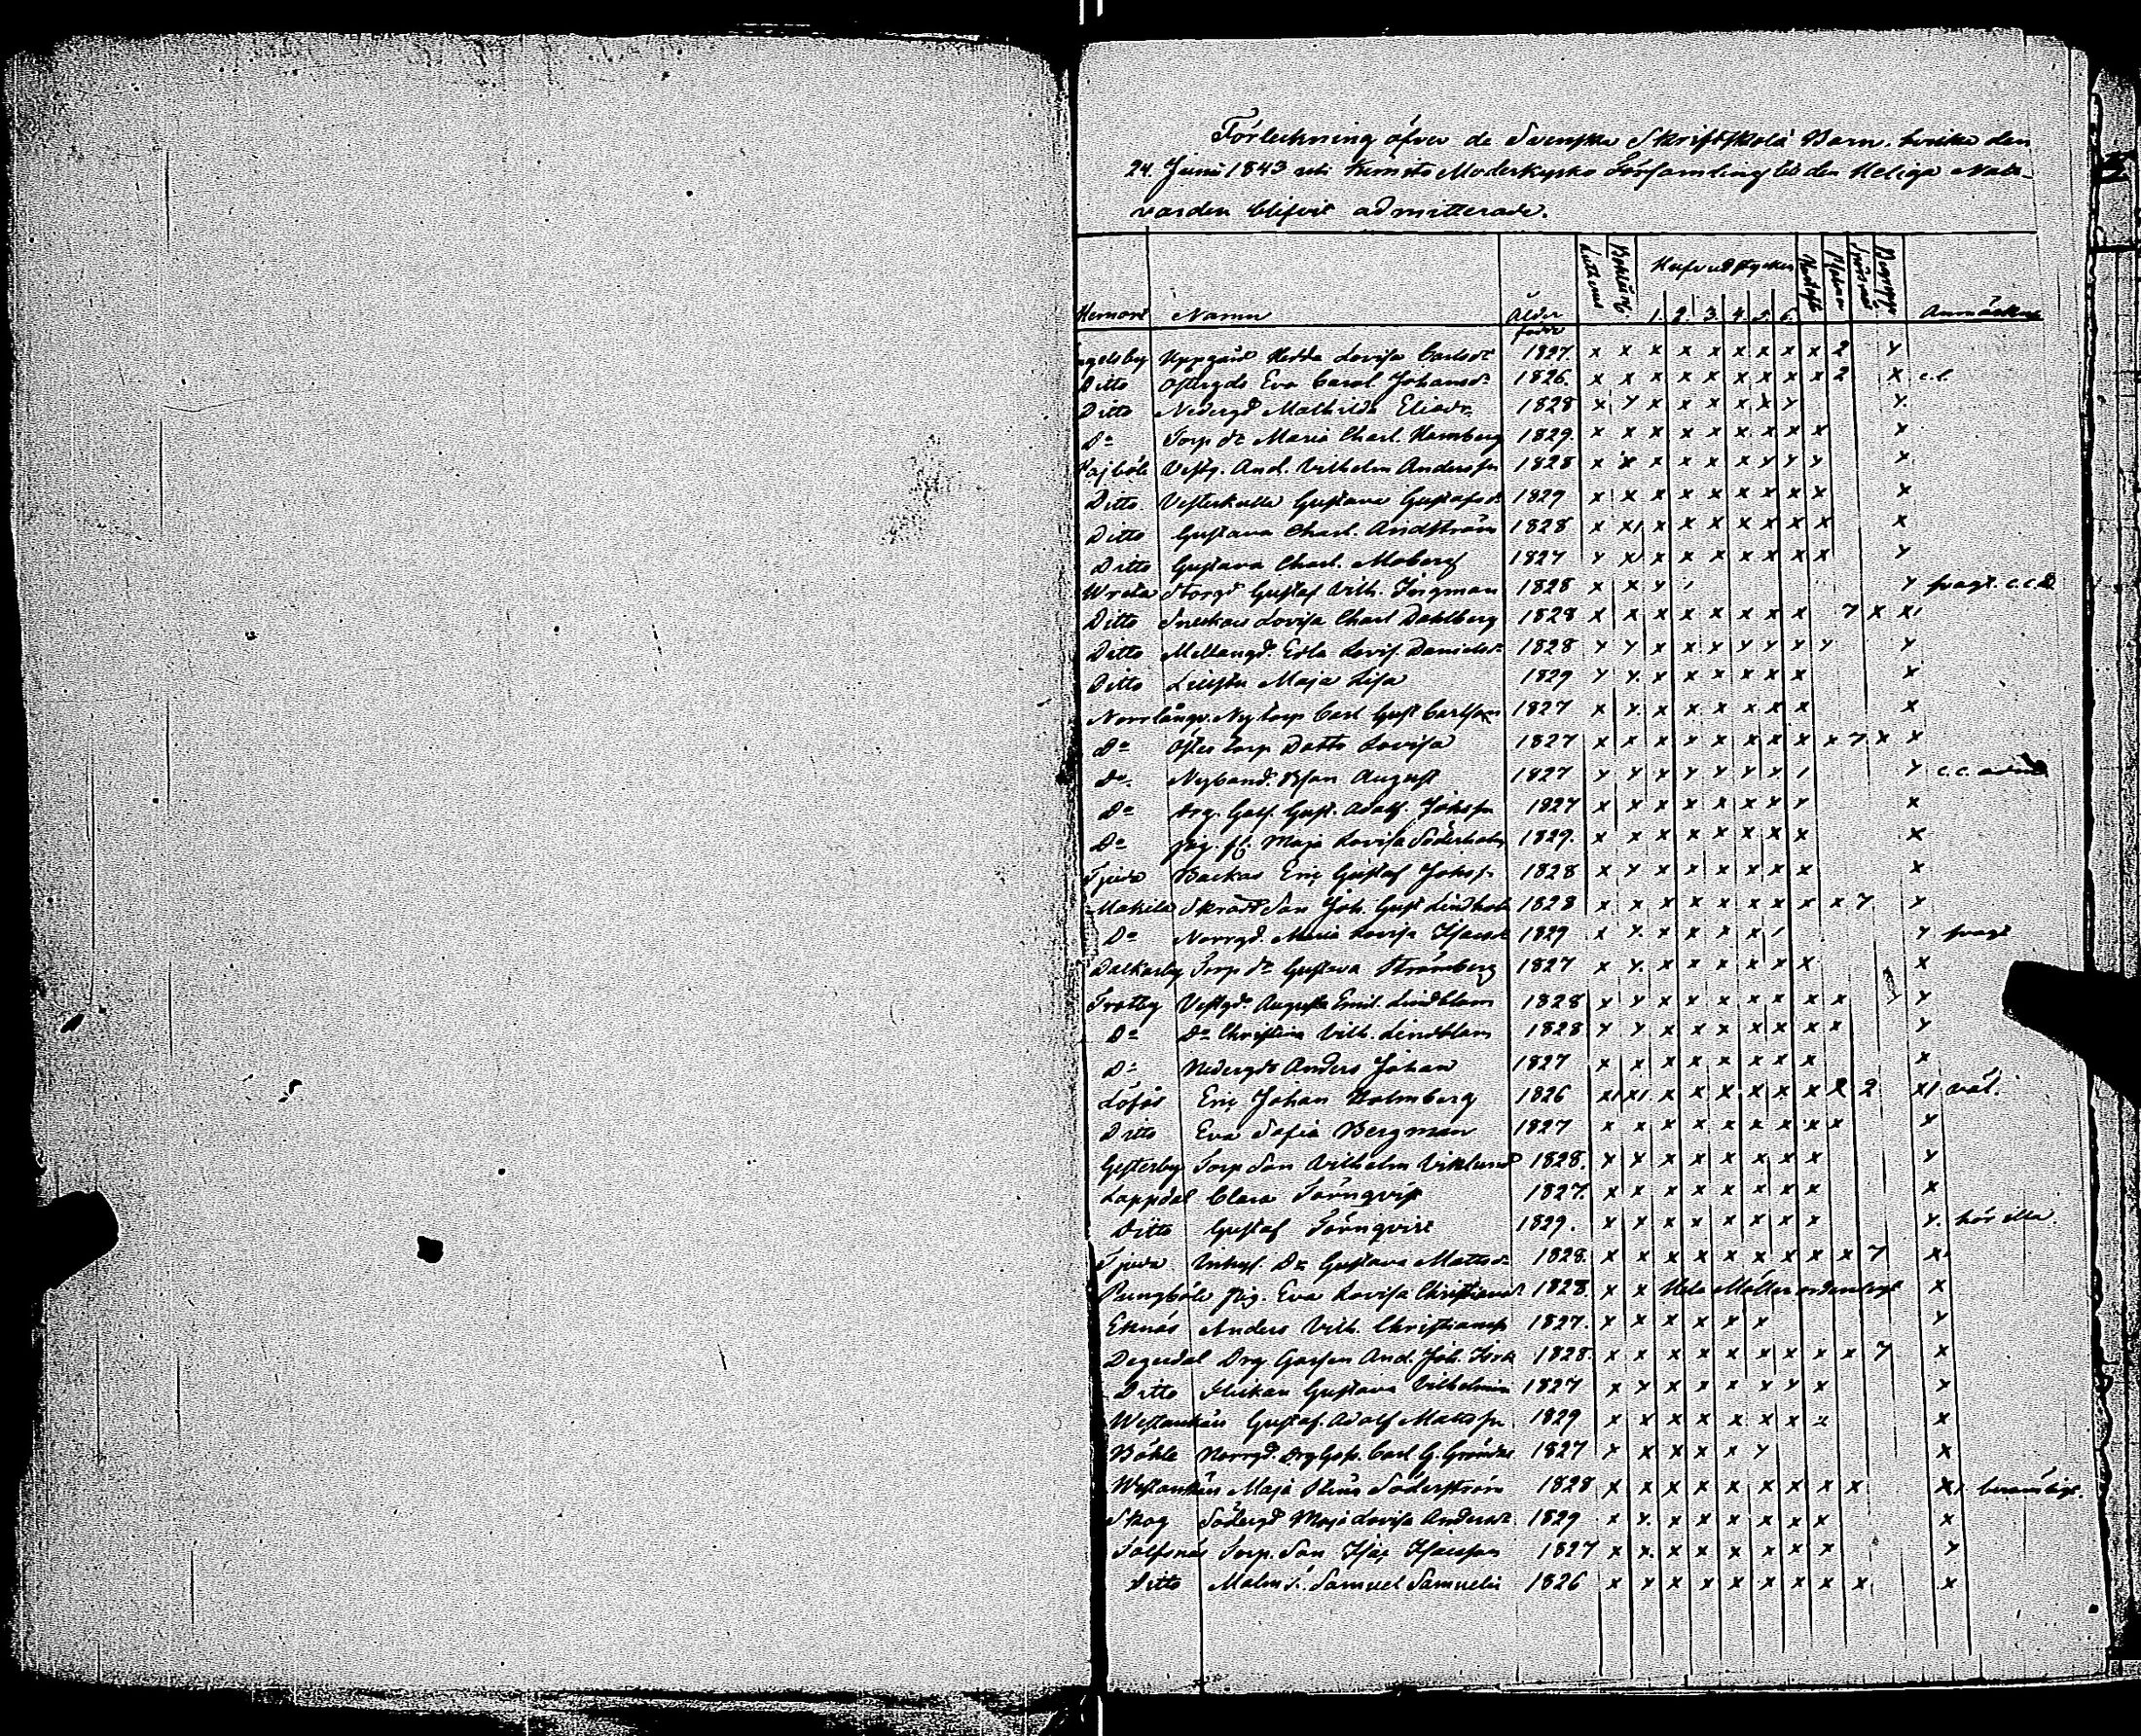 Förteckning öfver de Svenska Skriftskolä Barn, hvilka den
24. Junii 1843 uti Kimito Moderkyrko Församling till den Heliga Natt-
varden blifvit admitterade.
Hemort Namn Ålder födde Luth. Cat. Hufvudstycken 1. 2. 3. 4. 5. 6. Hustafl. Begrepp Anmärkn
Uppgård Hedda Lovisa Carlsdr 1827 x x x x x x x x x 2 y
Ditto Ostergds Eva Carol. Johansdr 1826. x x x x x x x x x 2 x c.l.
Ditto Nedergd Mathilda Eliaedr 1828 x y x x x x x y y.
Do Torp dr Maria Charl. Hamberg 1829. x x x x x x x x x y
Vestg. And. Vilhelm Andersson 1828 x x x x x x y y y x
Ditto Vesterkulla Gustava Gustafsdr 1829 x x x x x x x x x x
Ditto Gustava Charl. Andström 1828 x x x x x x x x x x
Ditto Gustava Charl. Moberg 1827 y x x x x x x x x y
Wreta Storgd Gustaf Vilh. Ingman 1828 x x y / y svagt. c.c.
Ditto Lovisa Charl Dahlberg 1828 x x x x x x x x 7 x x
Ditto Mellangd. Edla Lovis. Danielsdr 1828 y y x x x y y y y y
Ditto Maja Lisa 1829 y y x x x x x x x
Norrlångv. Nytorp Carl Gust Carlsson 1827 x y x x x x x x x
Do Öster torp Dotto Lovisa 1827 x x x x x x x x x x 7 x x
Do August 1827 y y y y y y x / y c.c.
Do Drg. Gust. Adolf. Johsson 1827 x x x x x x y y x
Do Pig. fl. Maja Lovisa Söderholm 1829. x x x x x x x x x
Tjuda Backas Eric Gustaf Johss. 1828 x y x x x x x x x
Makila Skrädd Son Joh. Gust Lindholm 1828 x x x x x x x x x x 7 y
Do Norrgd. Maria Lovisa Isacsdr 1829 x y x x x x / y svagt
Dalkarby Torp dr Gustava Strömberg 1827 x y. x x x x x x x
Trotby Vestgd. Augusta Emil. Lindblom 1828 x y x x x x x x x y y
Do Do Christina Vilh. Lindblom 1828 y y x x x x x x x y
Do Nedergds Anders Johan 1827 x x x x x x x x x
Löfös Eric Johan Holmberg 1826 x x x x x x x x x 2 2 x väl.
Ditto Eva Sofia Bergman 1827 x x x x x x x x x y
Gesterby Torp Son Vilhelm Viklund 1828. y y x x x x x x y
Lappdal Clara Törnqvist 1827. x x x x x x x x x
Ditto Gustaf Törnqvist 1829. x y x x x x x x y. hör illa.
Tjuda Inhys. Dr Gustava Mattsdr 1828. x x x x x x x x x x 7 x
Pungböle Pig. Eva Lovisa Christiansdr 1828. x x Hela Möller ordentligt x
Eknäs Anders Vilh. Christianss 1827. y x x x x x y
Degerdal Drg. Gossen And. Joh. 1828. x x x x x x x x x 7 x
Ditto Flickan Gustava Vilhelmina 1827 x y x x x x y x y
Westankärr Gustaf. Adolf Matsson 1829 x x x x x x x x x
Böhle Norrgd. Drg Gos. Carl G. 1827 y x x x x y x
Westankärr Maja Stina Söderström 1828 x x x x x x x x x x berömligt.
Skog Södergd Maja Lovisa Andersdr 1829 x y. x x x x x x x
Torp. Son Isac Isacsson 1827 x x. x x x x x x y
Ditto Malm s. Samuel Samuels 1826 x y x x x x x x x x